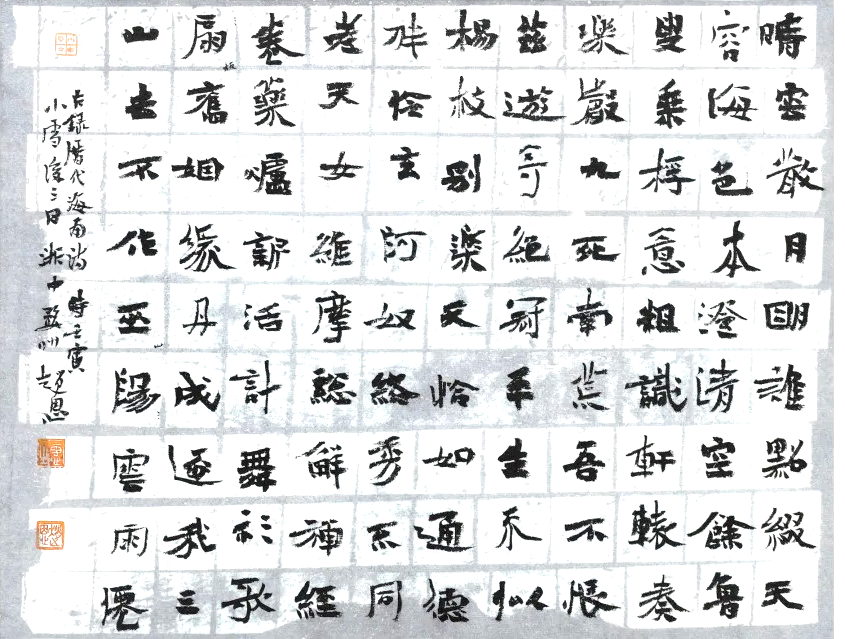 晴雲散月明誰點綴天
容海色本澄清空餘魯
叟乘桴意粗識軒轅奏
樂聲九死南荒吾不恨
茲遊奇絕冠平生不似
楊枝別樂天恰如通德
伴伶玄阿奴絡秀不同
老天女維摩總解禪經
卷藥爐新活計舞衫歌
扇舊姻緣丹成逐我三
山去不作巫陽雲雨僊
右錄歷代海南詩 時壬寅
小雪後三日 浙中